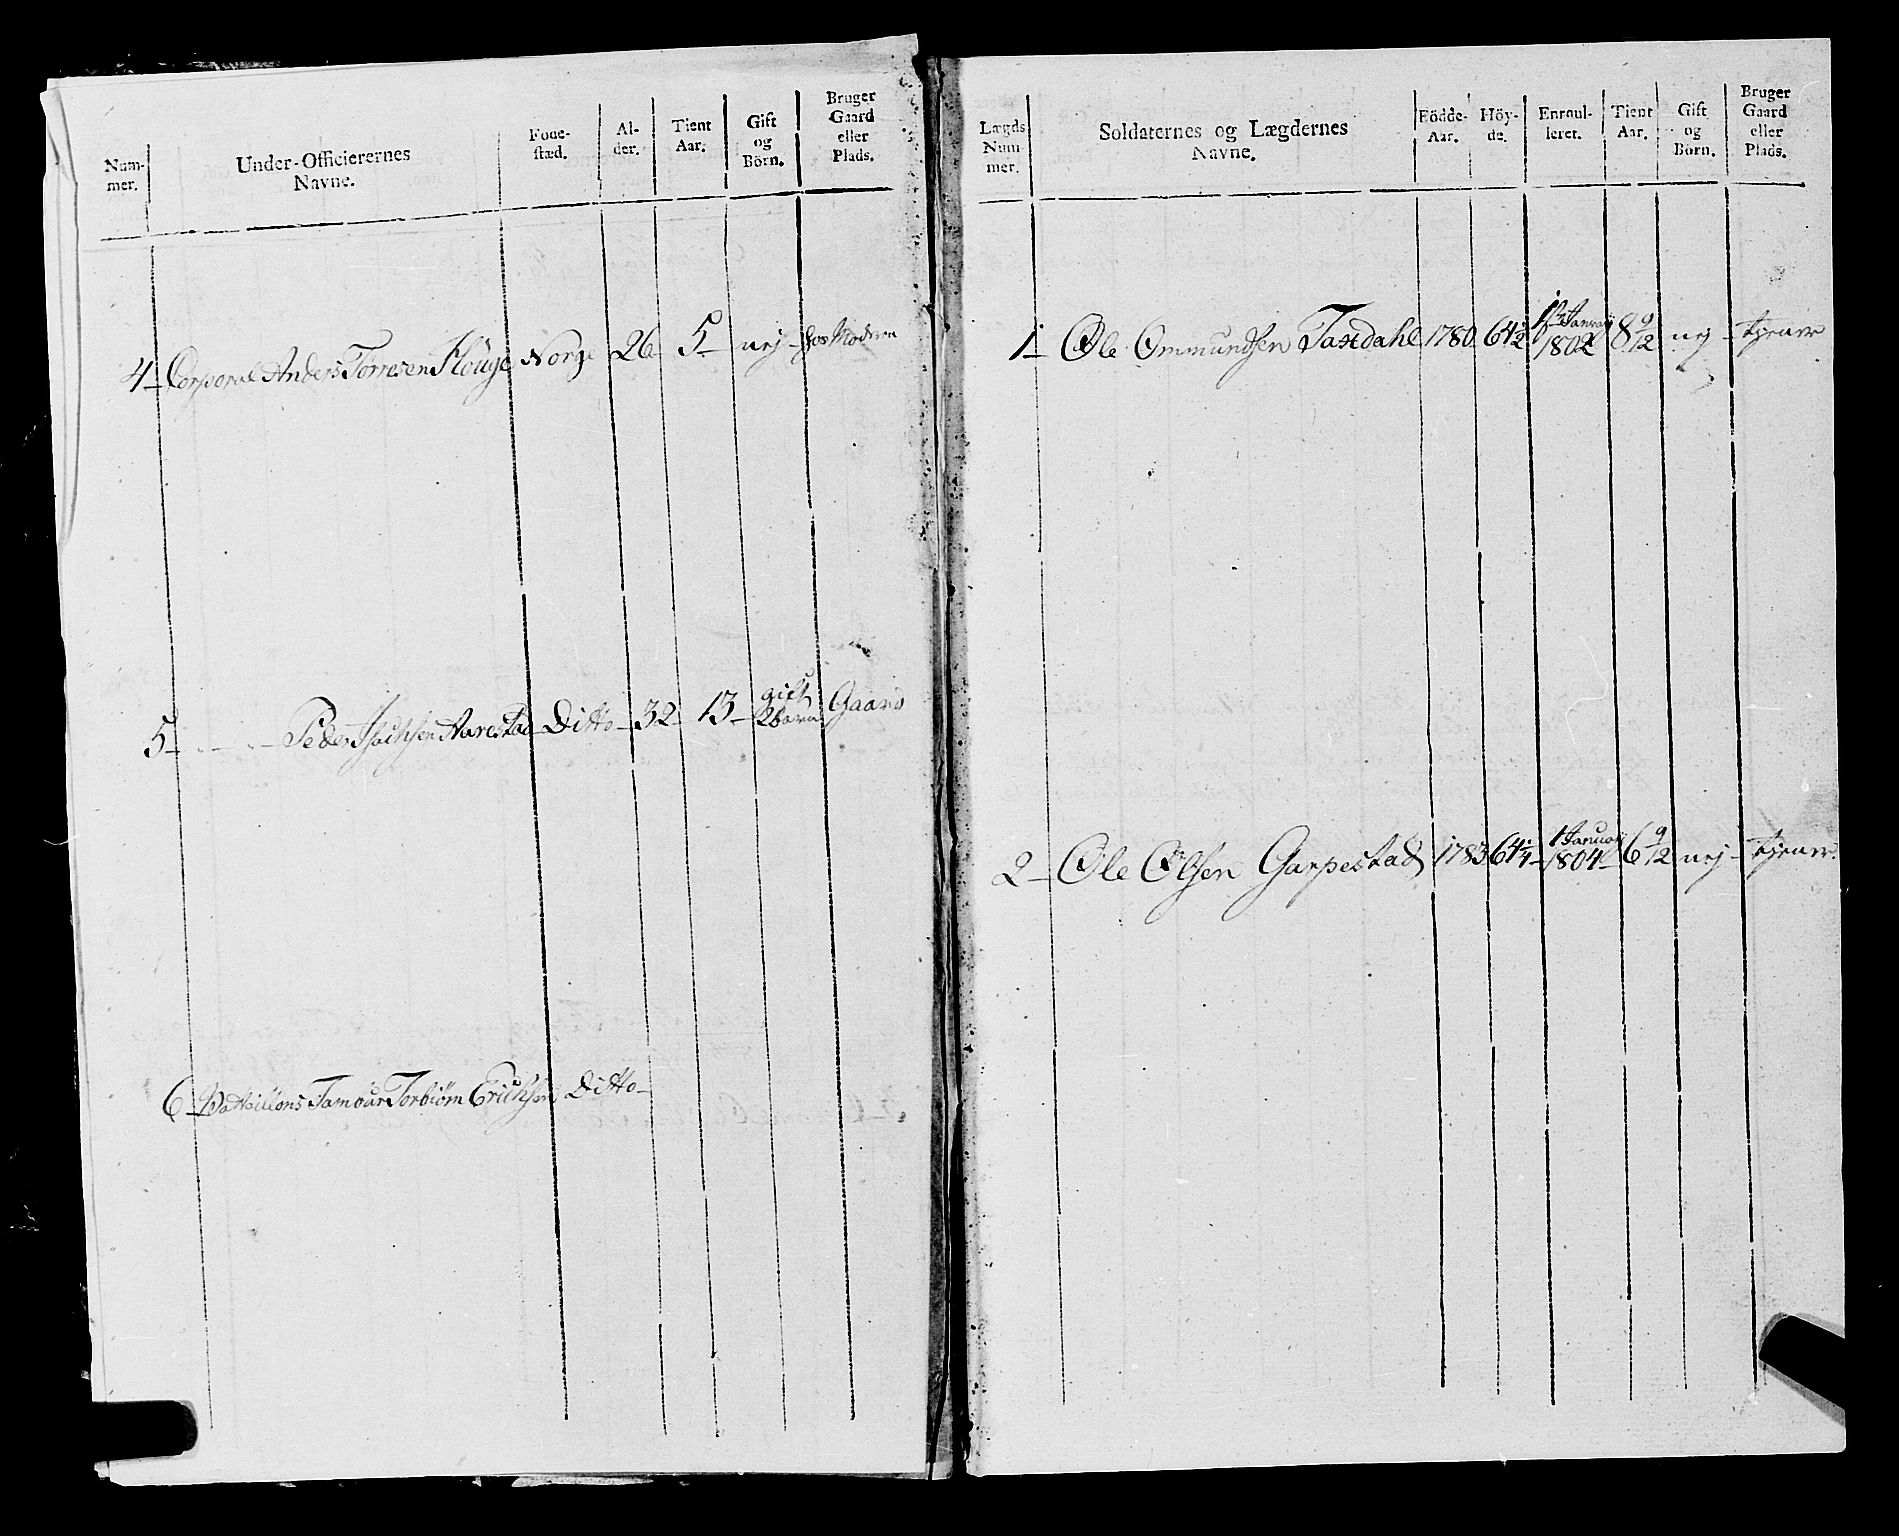 Num-
mer.
Under-Officierernes
Navne.
Föde-
stæd.
Al-
der.
Tient
Aar.
Gift
og
Börn.
Bruger
Gaard
eller
Plads.
4 Corporal Anders Torresen Houge Norge 26 5 nej hos Moderen
5 Peder Isachsen Aarestad Ditto 32 13 gift
2 barn Gaard
6 Battaillons Tambur Torbiörn Erichsen Ditto
Lægds
Num-
mer.
Soldaternes og Lægdernes
Navne.
Födde-
Aar.
Höy-
de.
Enroul-
leret.
Tient
Aar.
Gift
og
Börn.
Bruger
Gaard
eller
Plads.
1 Ole Ommundsen Taxdahl 1780 64½ Januarj
1802 8 9/12 nej tjener
2 Ole Olsen Garpestad 1783 64¼ 1 Januarj
1804 6 9/12 nej tjener